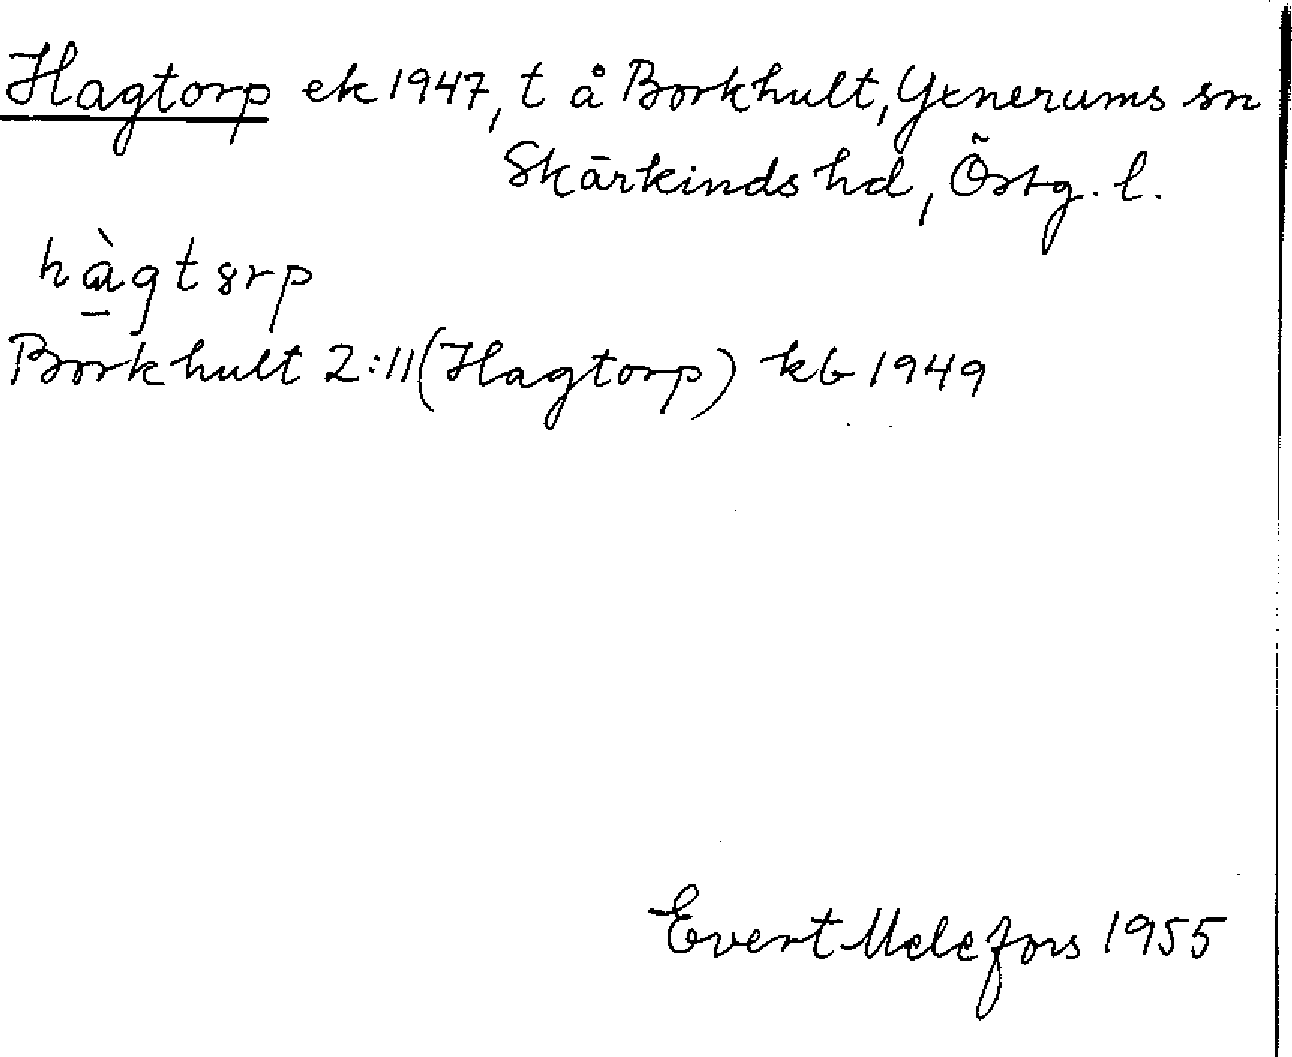 Hagtorp ek 1947, t å Borkhult, Yxnerums sn
Skärkinds hd, Östg. l.
hàgtsrp
Borkhult 2:11 (Hagtorp) kb 1949
Evert Melefors 1955